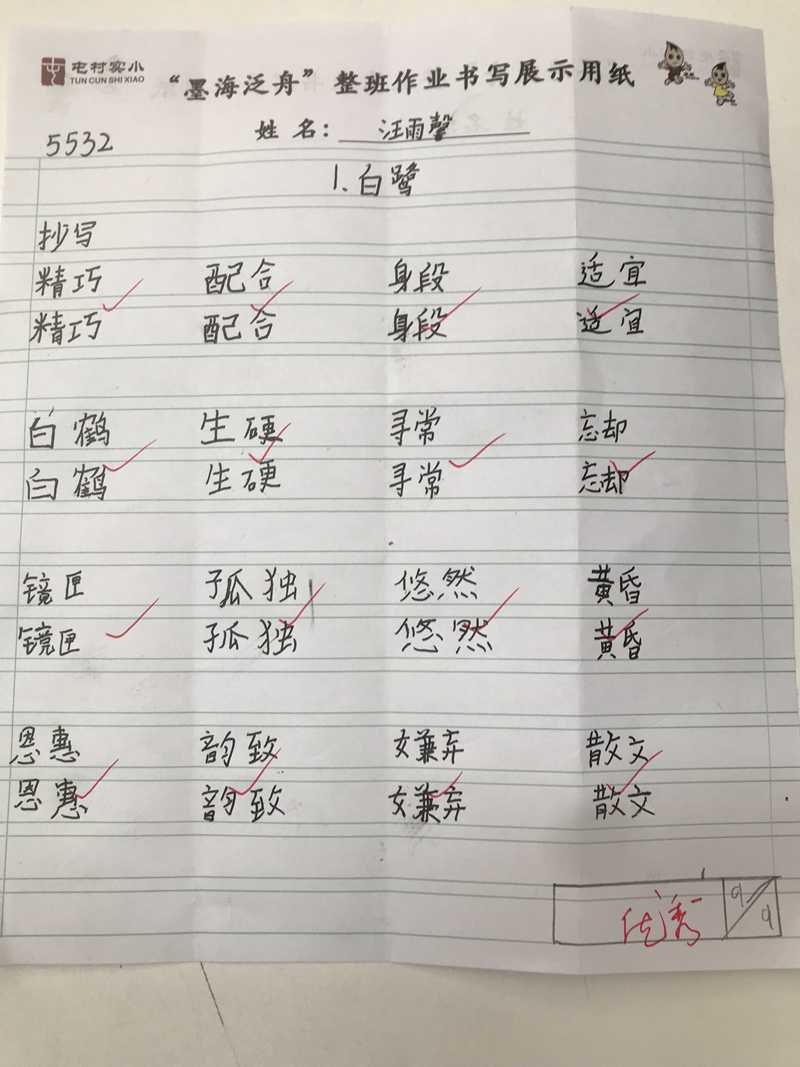 屯村实小
TUN CUN SHI XIAO
“墨海泛舟”整班作业书写展示用纸
5532
姓名：汪雨馨
1.白鹭
抄写
精巧 配合 身段 适宜
精巧 配合 身段 适宜
白鹤 生硬 寻常 忘却
白鹤 生硬 寻常 忘却
镜匣 孤独 悠然 黄昏
镜匣 孤独 悠然 黄昏
恩惠 韵致 嫌弃 散文
恩惠 韵致 嫌弃 散文
优秀 9/9